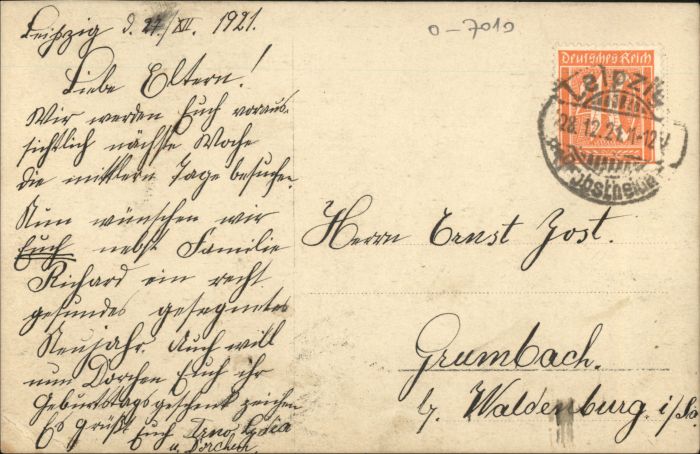 Leipzig d. 27./XII. 1921.
Liebe Eltern!
Wir werden Euch voraus-
sichtlich nächste Woche
die mittlern Tage besuchen.
Nun wünschen wir
Euch nebst Familie
Richard ein recht
gesundes gesegnetes
Neujahr. Auch will
nun Dorchen Euch ihr
Geburtstagsgeschenk zeichen
Es grüßt Euch Arno, Lydia
u. Dorchen.
0-7010
Deutsches Reich
Leipzig
28.12.21. 11-12V
Herrn Ernst Jost.
Grumbach.
b/ Waldenburg i/Sa.